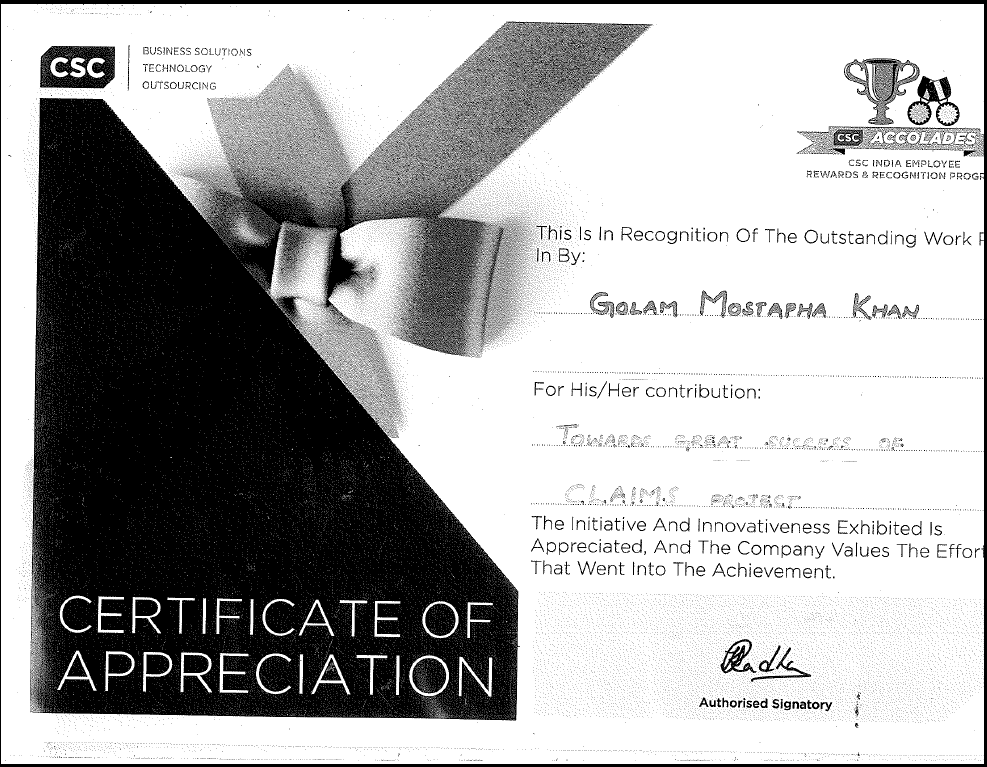 CSC
BUSINESS SOLUTIONS
TECHNOLOGY
OUTSOURCING
CSC ACCOLADES
CSC INDIA EMPLOYEE
REWARDS & RECOGNITION PROGR
This Is In Recognition Of The Outstanding Work P
In By:
GOLAM MOSTAPHA KHAN
For His/Her contribution:
TOWARDS GREAT SUCCESS OF
CLAIMS PROJECT
The Initiative And Innovativeness Exhibited Is
Appreciated, And The Company Values The Effort
That Went Into The Achievement.
CERTIFICATE OF
APPRECIATION
Authorised Signatory